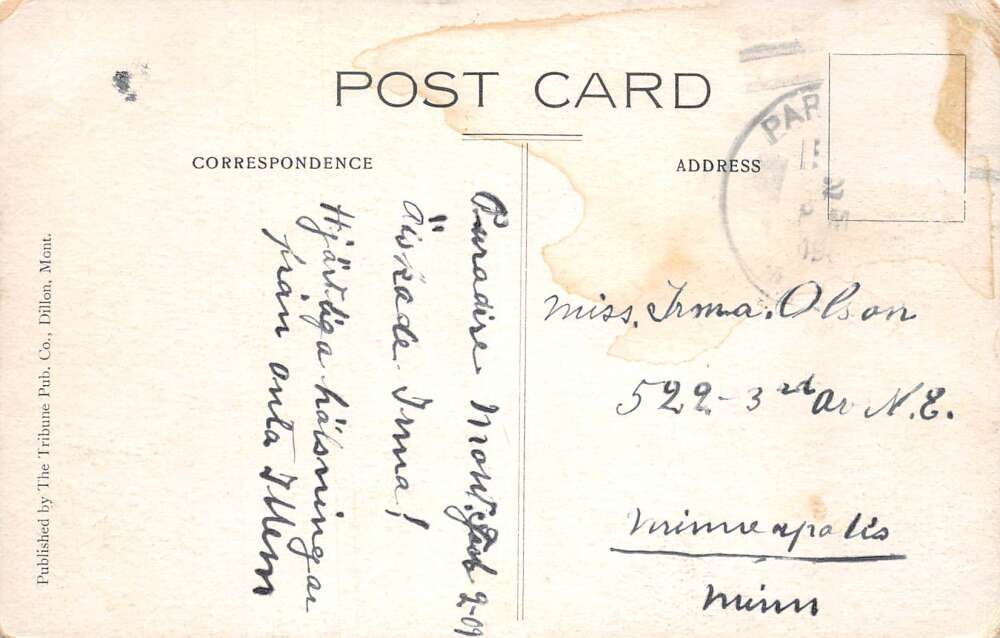 POST CARD
CORRESPONDENCE
ADDRESS
PAR
Paradise Mont. Feb 2-09
Äiskade Irma!
Hjärtliga hälsningar
från onta
Miss. Irma. Olson
522-3rd Av N.E.
Minneapolis
Minn
Published by The Tribune Pub. Co., Dillon, Mont.